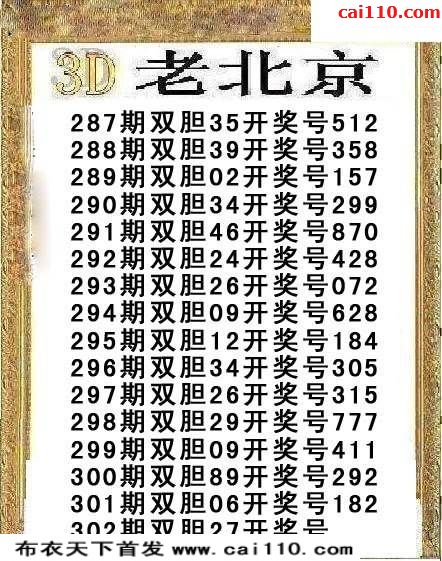 cai110.com
3D 老北京
287期双胆35开奖号512
288期双胆39开奖号358
289期双胆02开奖号157
290期双胆34开奖号299
291期双胆46开奖号870
292期双胆24开奖号428
293期双胆26开奖号072
294期双胆09开奖号628
295期双胆12开奖号184
296期双胆34开奖号305
297期双胆26开奖号315
298期双胆29开奖号777
299期双胆09开奖号411
300期双胆89开奖号292
301期双胆06开奖号182
302期双胆27开奖号
布衣天下首发 www.cai110.com